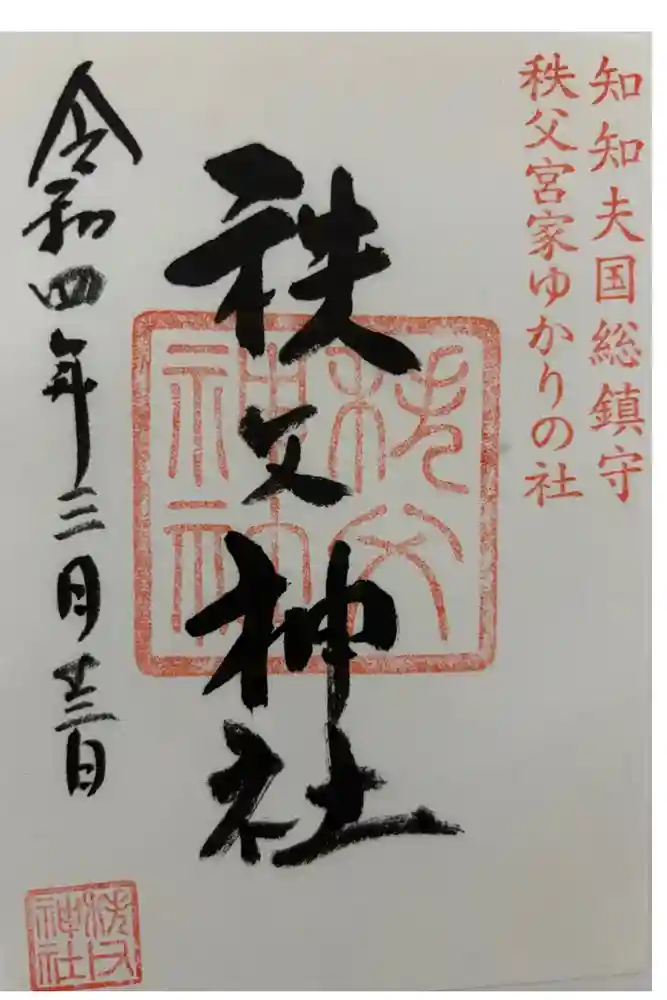 知知夫国総鎮守
秩父宮家ゆかりの社
秩父神社
秩父神社
令和四年三月廿三日
秩父神社